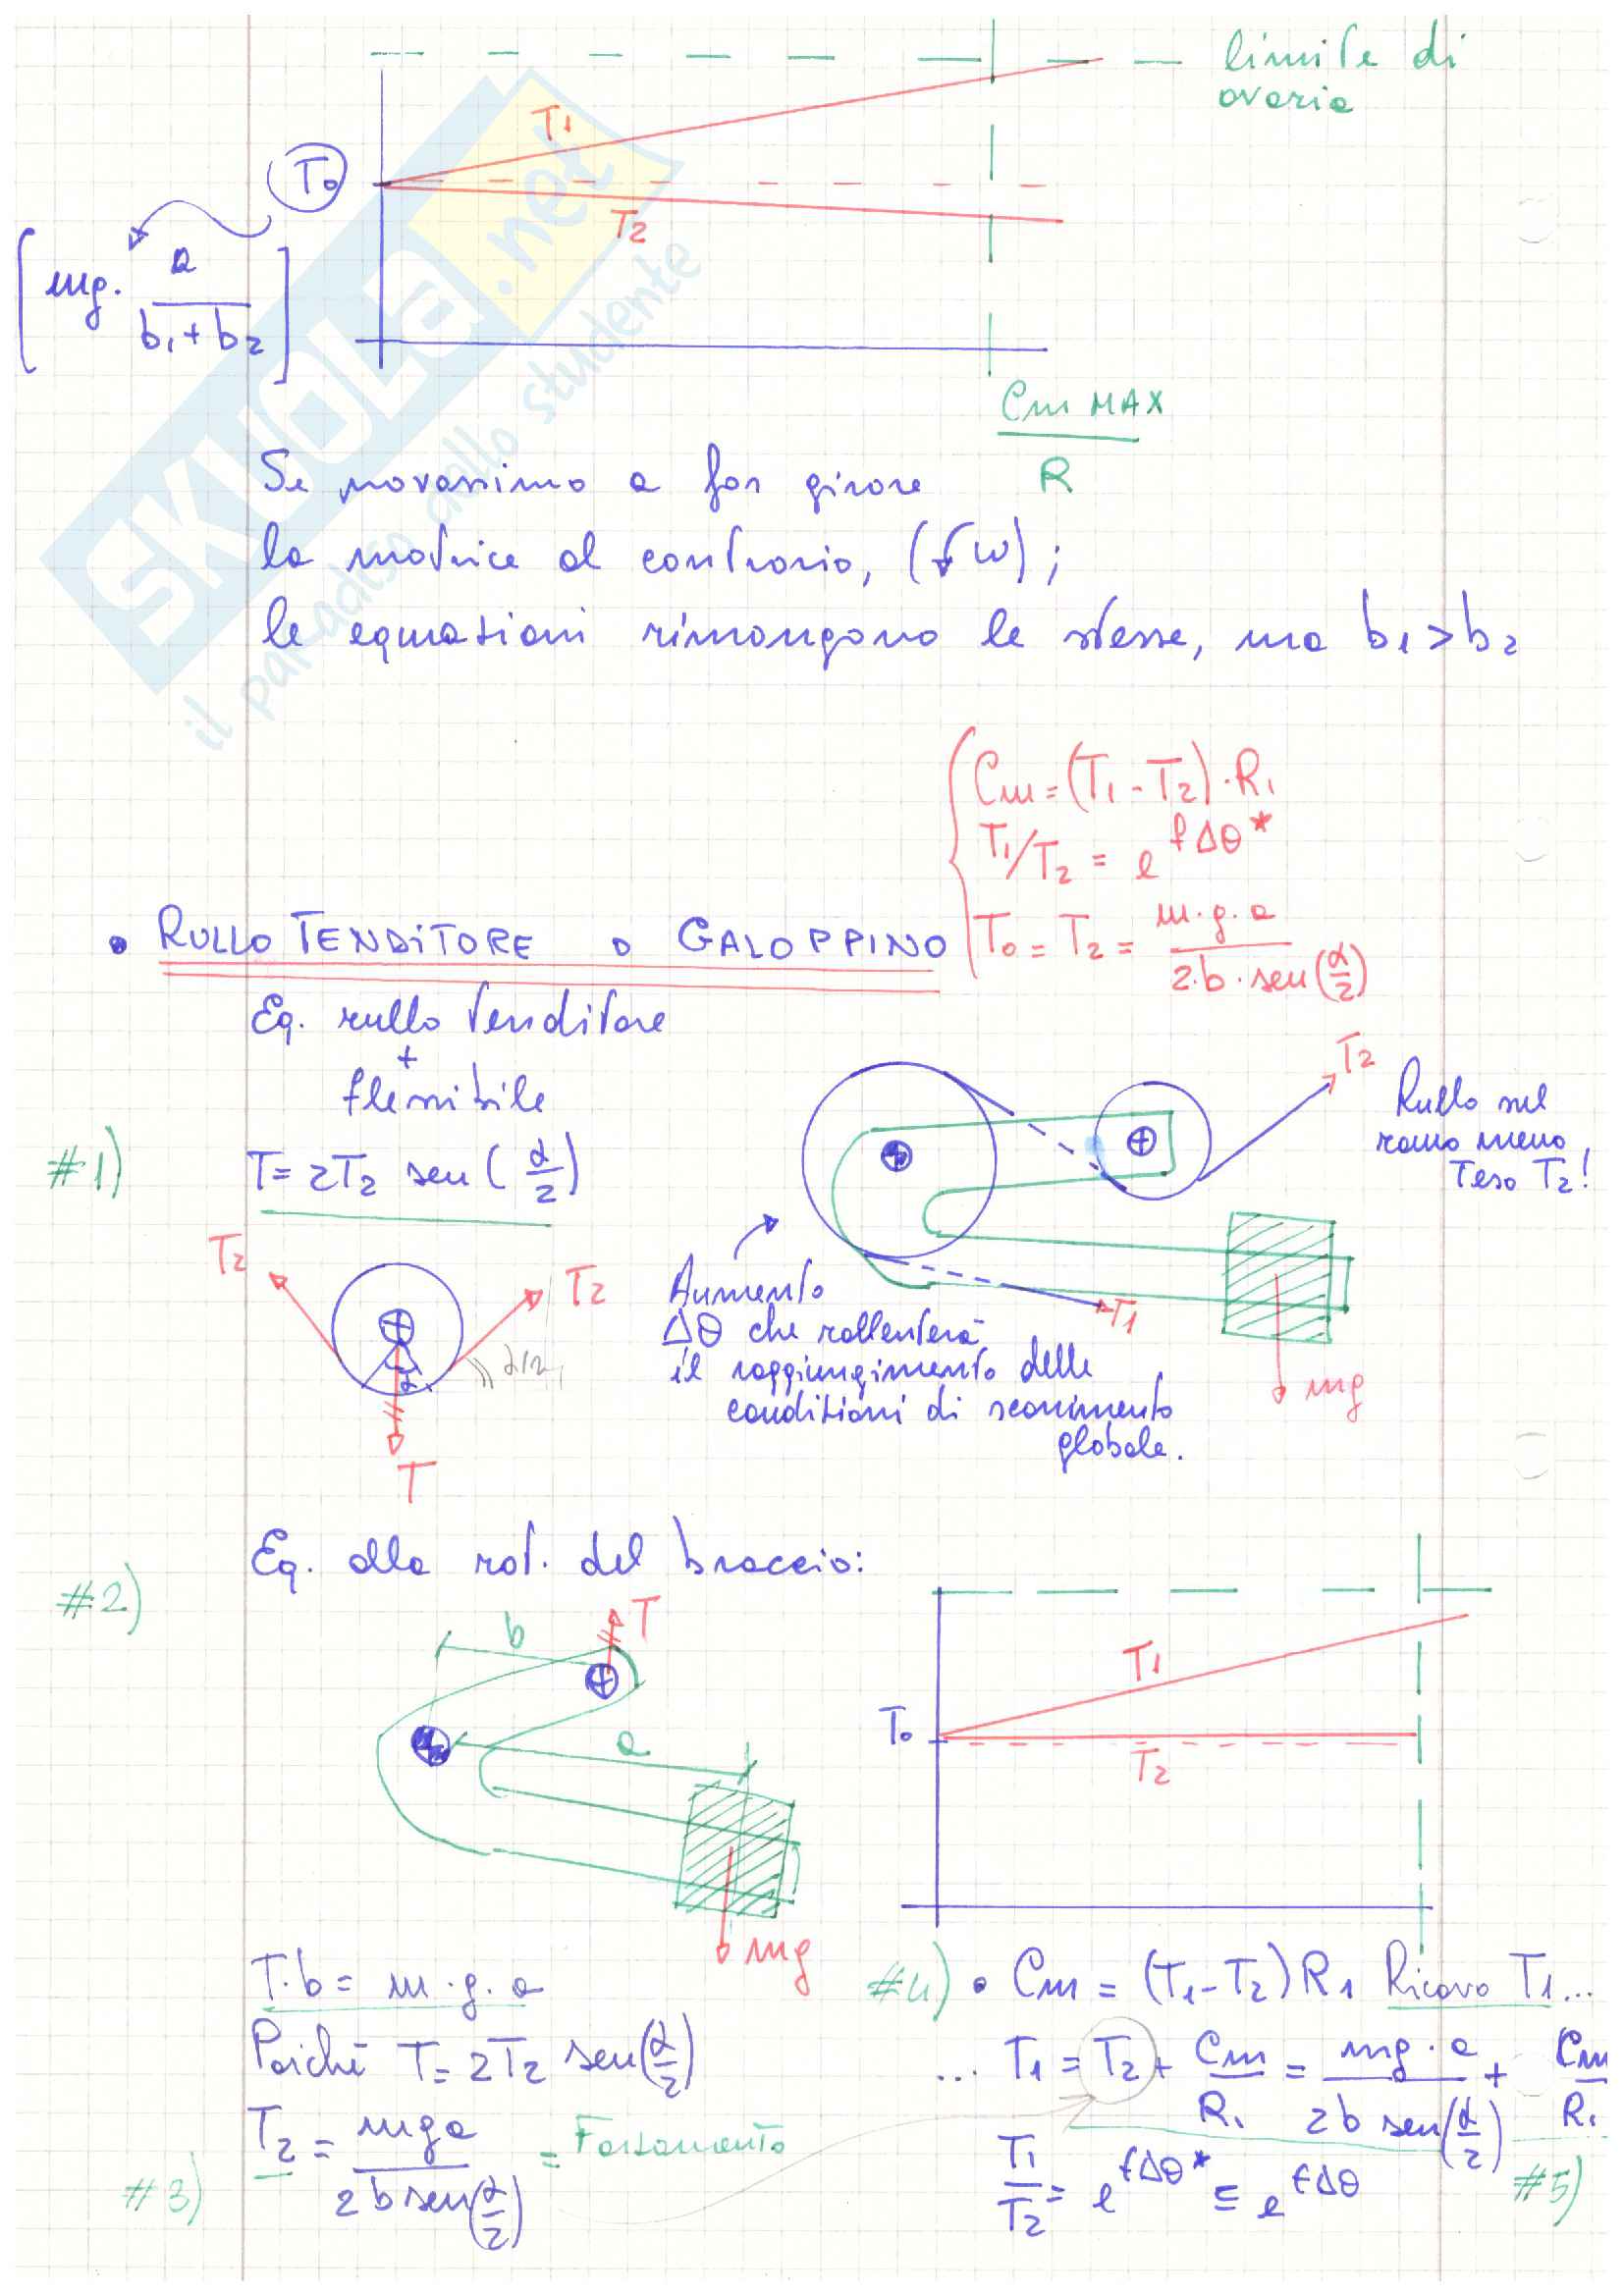 limite di
avaria
T1
T0
T2
[mg. a/(b1+b2)]
Cm MAX
R
Se provassimo a far girare
la motrice al contrario, (ω);
le equazioni rimangono le stesse, ma b1>b2
Cm=(T1-T2)·R1
T1/T2 = e^fΔθ*
• RULLO TENDITORE o GALOPPINO
T0=T2= m·g·a/(2·b·sen(α/2))
Eq. rullo tenditore
+
flessibile
#1)
T=2T2 sen(α/2)
T2
Rullo sul
ramo meno
Teso T2!
T2
T2
α/2
α
T
Aumento
Δθ che rallenterà
il raggiungimento delle
condizioni di scorrimento
globale.
T1
mg
#2)
Eq. alla rot. del braccio:
b
T
a
mg
T1
T0
T2
T·b= m·g·a
Poiché T=2T2 sen(α/2)
#3)
T2= mga/(2b sen(α/2)) = Forzamento
#4) • Cm = (T1-T2)R1 Ricavo T1...
... T1 = T2+ Cm/R1 = mg·a/(2b sen(α/2)) + Cm/R1
#5)
T1/T2= e^fΔθ* ≤ e^fΔθ
SKUOLA.net
il paradiso dello studente